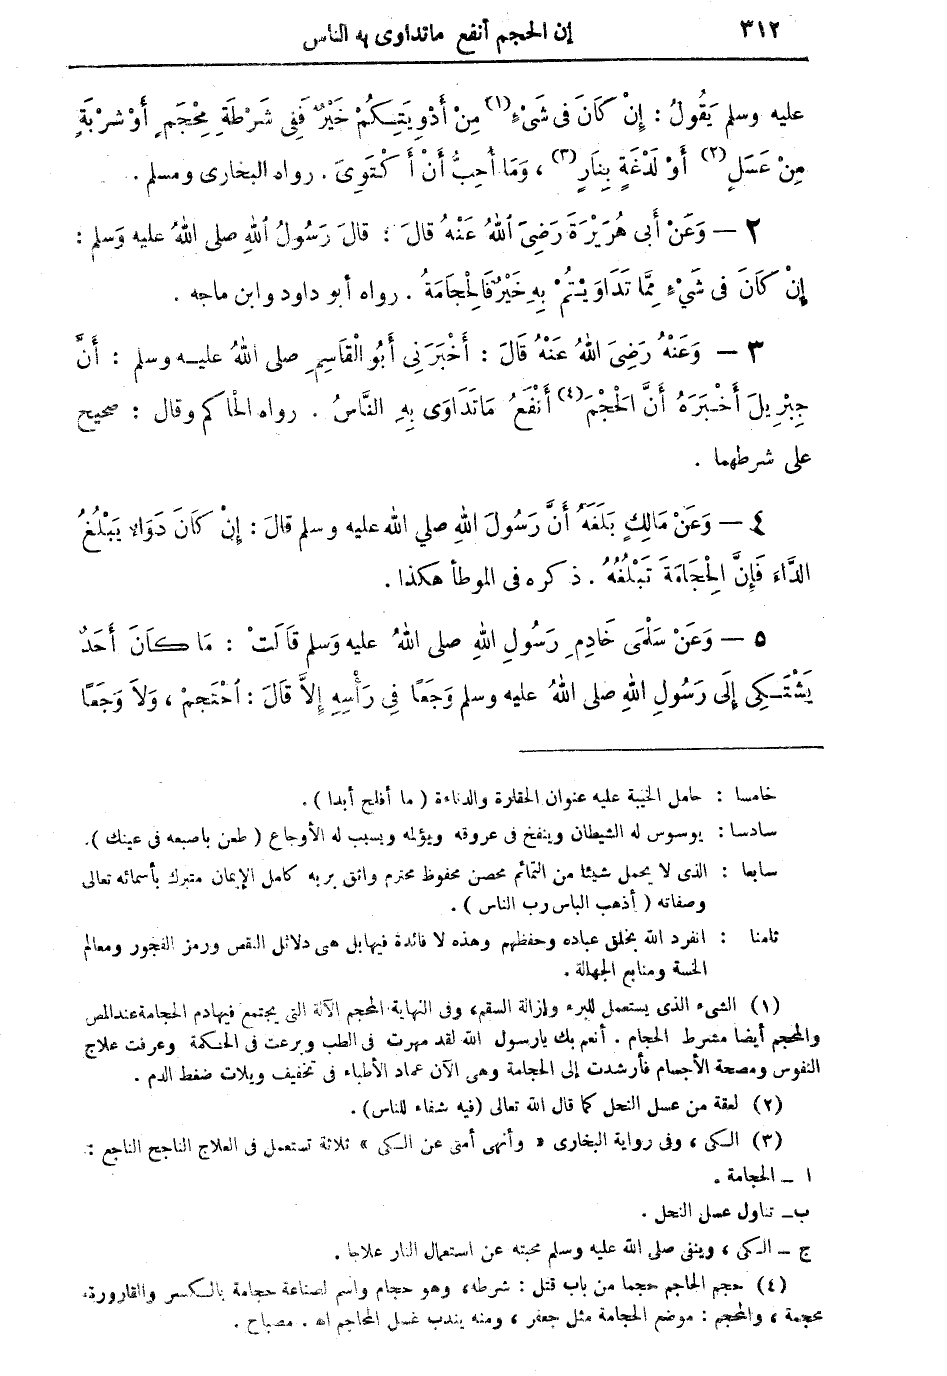 ٣١٢
إن الحجم أنفع ماتداوى به الناس
عليه وسلم يَقُولُ : إِنْ كَانَ فى شَيْءٍ (١) مِنْ أَدْوِيَتِكُمْ خَيْرٌ فَفِى شَرْطَةِ مِحْجَمٍ أَوْ شَرْبَةٍ
مِنْ عَسَلٍ (٢) أَوْ لَدْغَةٍ بِنَارٍ (٣) ، وَمَا أُحِبُّ أَنْ أَكْتَوِىَ . رواه البخارى ومسلم .
٢ — وَعَنْ أَبى هُرَيْرَةَ رَضِىَ ٱللهُ عَنْهُ قالَ : قالَ رَسُولُ ٱللهِ صلى اللهُ عليه وَسلم :
إِنْ كَانَ فى شَيْءٍ مِمَّا تَدَاوَيْتُمْ بِهِ خَيْرٌ فَالْحِجَامَةُ . رواه أبو داود وابن ماجه .
٣ — وَعَنْهُ رَضِىَ اللهُ عَنْهُ قَالَ : أَخْبَرَنِى أَبُو الْقَاسِمِ صلى اللهُ عليه وسلم : أَنَّ
جِبْرِيلَ أَخْبَرَهُ أَنَّ الْحَجْمَ (٤) أَنْفَعُ مَاتَدَاوَى بِهِ النَّاسُ . رواه الحاكم وقال : صحيح
على شرطهما .
٤ — وَعَنْ مَالِكٍ بَلَغَهُ أَنَّ رَسُولَ اللهِ صلي الله عليه وسلم قالَ : إِنْ كَانَ دَوَاءٌ يَبْلُغُ
الدَّاءَ فَإِنَّ الْحِجَامَةَ تَبْلُغُهُ . ذكره فى الموطأ هكذا .
٥ — وَعَنْ سَلْمَى خَادِمِ رَسُولِ اللهِ صلى اللهُ عليه وَسلم قَالَتْ : مَا كَانَ أَحَدٌ
يَشْتَكِى إِلَى رَسُولِ اللهِ صلى اللهُ عليه وسلم وَجَعًا فِى رَأْسِهِ إِلاَّ قَالَ : ٱحْتَجِمْ ، وَلاَ وَجَعًا
خامسا : حامل الخيبة عليه عنوان الحقارة والدناءة ( ما أفلح أبدا ) .
سادسا : يوسوس له الشيطان وينفخ فى عروقه ويؤلمه ويسبب له الأوجاع ( طعن باصبعه فى عينك ) .
سابعا : الذى لا يحمل شيئا من التمائم محصن محفوظ محترم واثق بربه كامل الإيمان متبرك بأسمائه تعالى
وصفاته ( أذهب الباس رب الناس ) .
ثامنا : انفرد الله بخلق عباده وحفظهم وهذه لا فائدة فيها بل هى دلائل النقص ورمز الفجور ومعالم
الخسة ومنابع الجهالة .
(١) الشىء الذى يستعمل للبرء وإزالة السقم، وفى النهاية المحجم الآلة التى يجتمع فيها دم الحجامة عند المص
والمحجم أيضا مشرط الحجام . أنعم بك يارسول الله لقد مهرت فى الطب وبرعت فى الحكمة وعرفت علاج
النفوس ومصحة الأجسام فأرشدت إلى الحجامة وهى الآن عماد الأطباء فى تخفيف ويلات ضغط الدم .
(٢) لعقة من عسل النحل كما قال الله تعالى (فيه شفاء للناس) .
(٣) الكى ، وفى رواية البخارى « وأنهى أمتى عن الكى » ثلاثة تستعمل فى العلاج الناجح الناجع :
ا — الحجامة .
ب— تناول عسل النحل .
ج — الكى ، وينفى صلى الله عليه وسلم محبته عن استعمال النار علاجا .
(٤) حجم الحاجم حجما من باب قتل : شرطه، وهو حجام واسم لصناعة حجامة بالكسر والقارورة،
محجمة ، والمحجم : موضع الحجامة مثل جعفر ، ومنه يندب غسل المحاجم اه . مصباح .